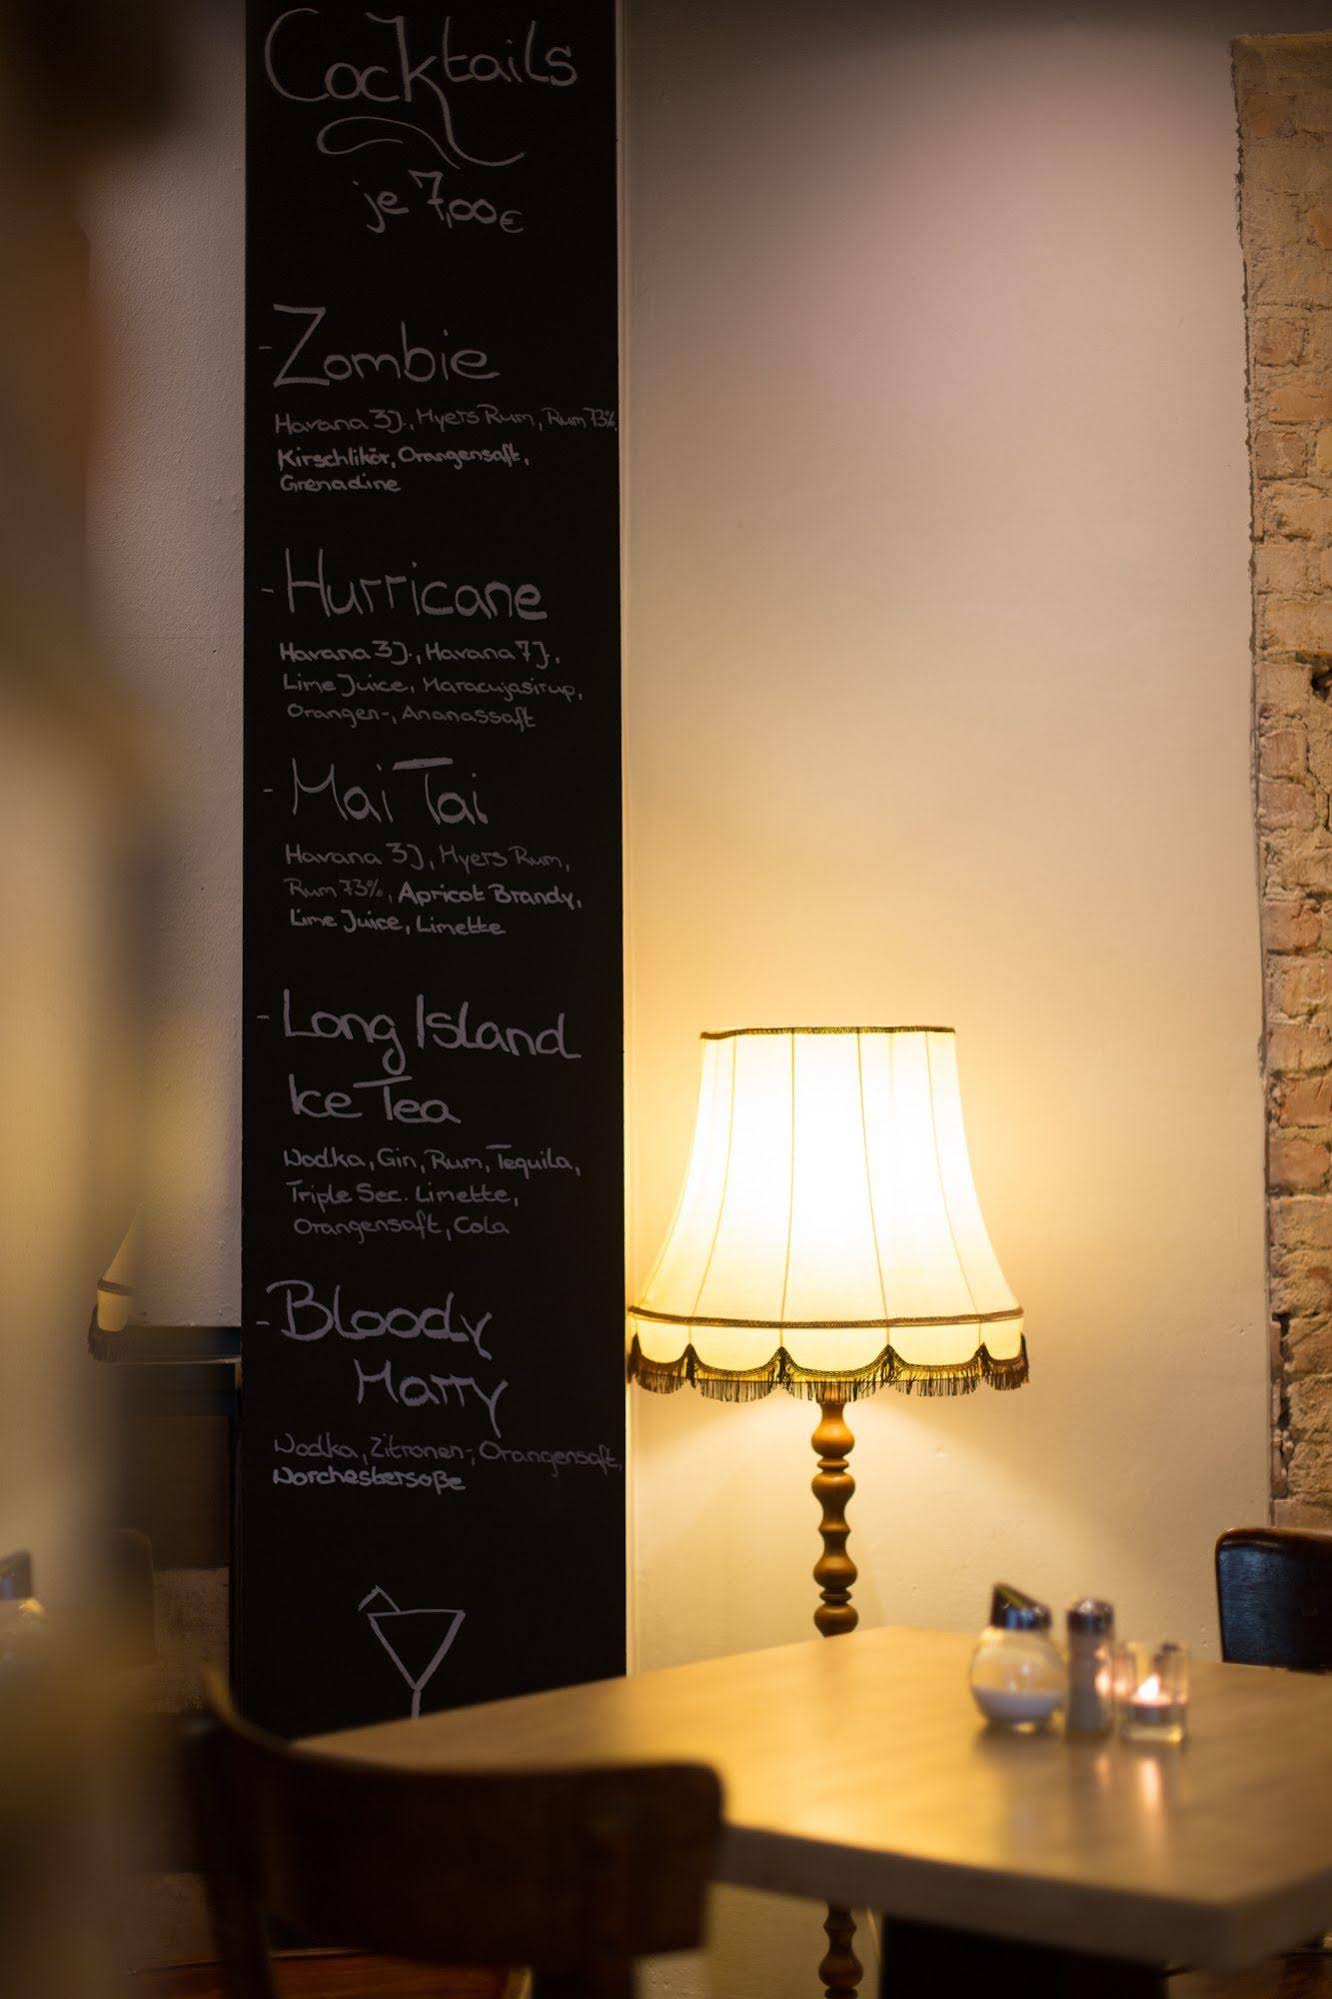 Cocktails
je 7,00€
- Zombie
Havana 3J., Myers Rum, Rum 73%,
Kirschlikör, Orangensaft,
Grenadine
- Hurricane
Havana 3J., Havana 7J.,
Lime Juice, Maracujasirup,
Orangen-, Ananassaft
- Mai Tai
Havana 3J, Myers Rum,
Rum 73%, Apricot Brandy,
Lime Juice, Limette
- Long Island
Ice Tea
Wodka, Gin, Rum, Tequila,
Triple Sec. Limette,
Orangensaft, Cola
- Bloody
Marry
Wodka, Zitronen-, Orangensaft,
Worchestersoße